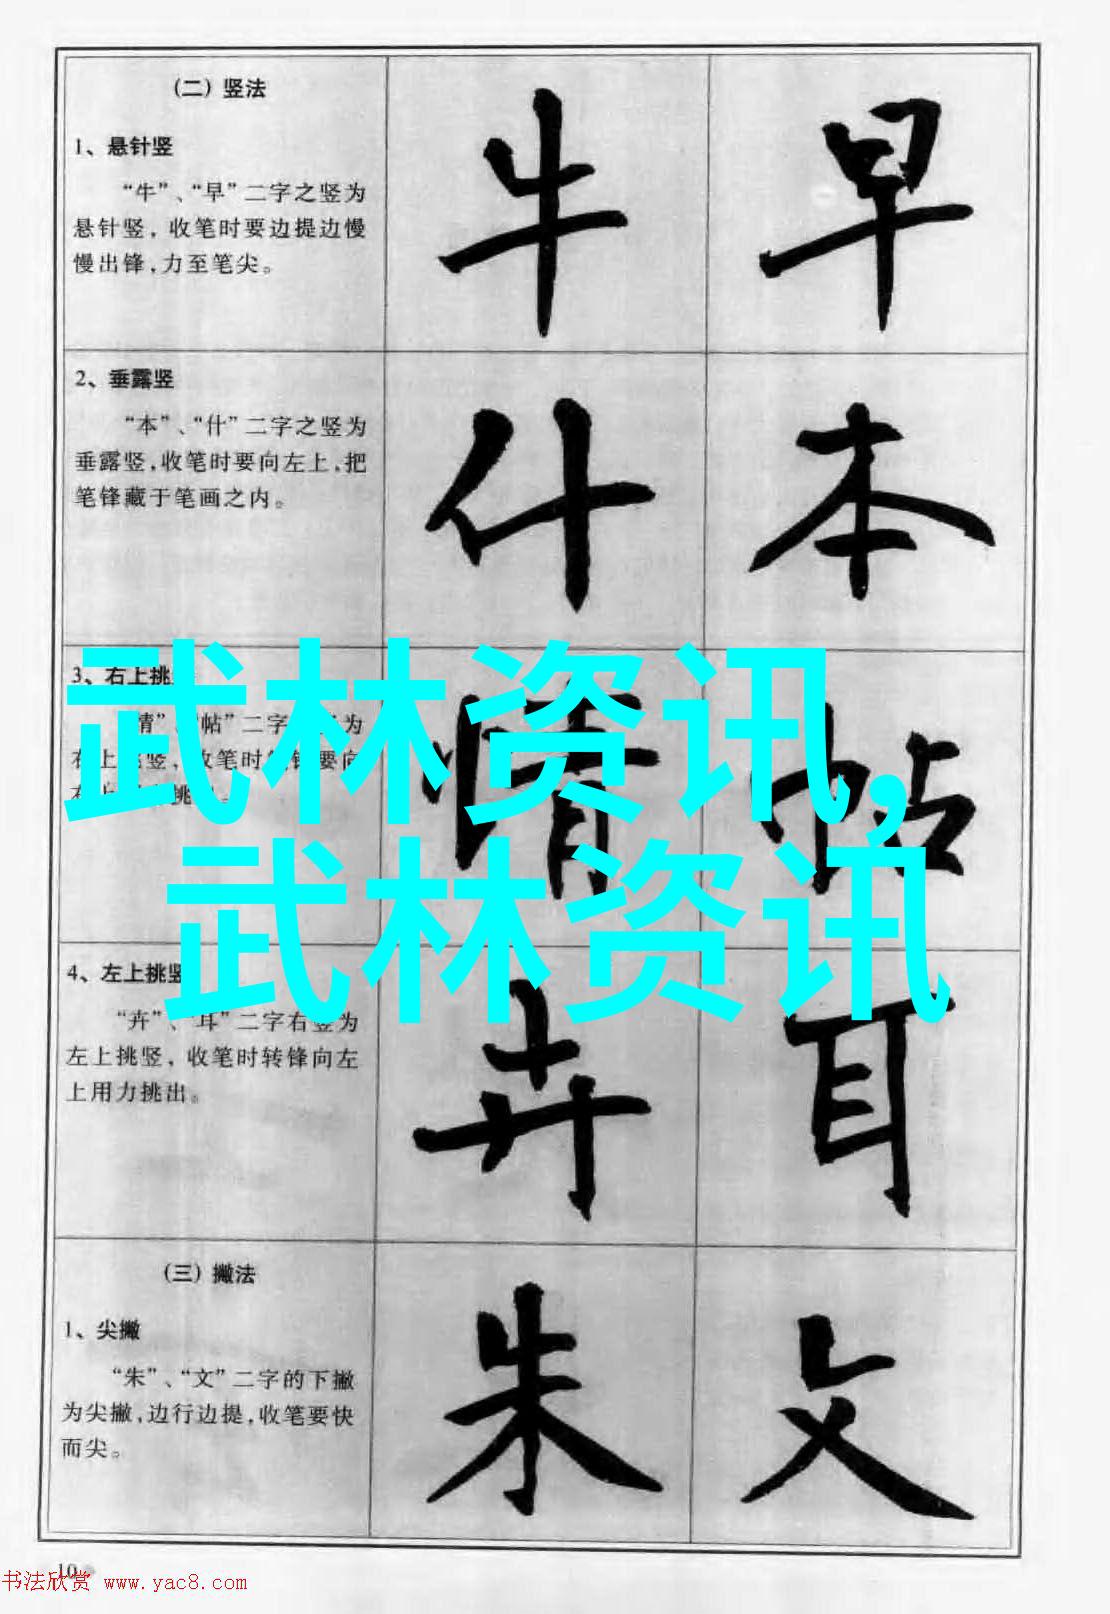 (二) 竖法
1、悬针竖
“牛”、“早”二字之竖为
悬针竖, 收笔时要边提边慢
慢出锋,力至笔尖。
牛 早
2、垂露竖
“本”、“什”二字之竖为
垂露竖,收笔时要向左上,把
笔锋藏于笔画之内。
什 本
3、右上挑
情”
帖”二字
为
收笔时
要向
挑
情 帖
武林资讯,
武林资讯
4、左上挑竖
“卉”、“耳”二字右竖为
左上挑竖, 收笔时转锋向左
上用力挑出。
卉 耳
(三) 撇法
1、尖撇
“朱”、“文”二字的下撇
为尖撇,边行边提,收笔要快
而尖。
朱 文
10
书法欣赏 www.yac8.com